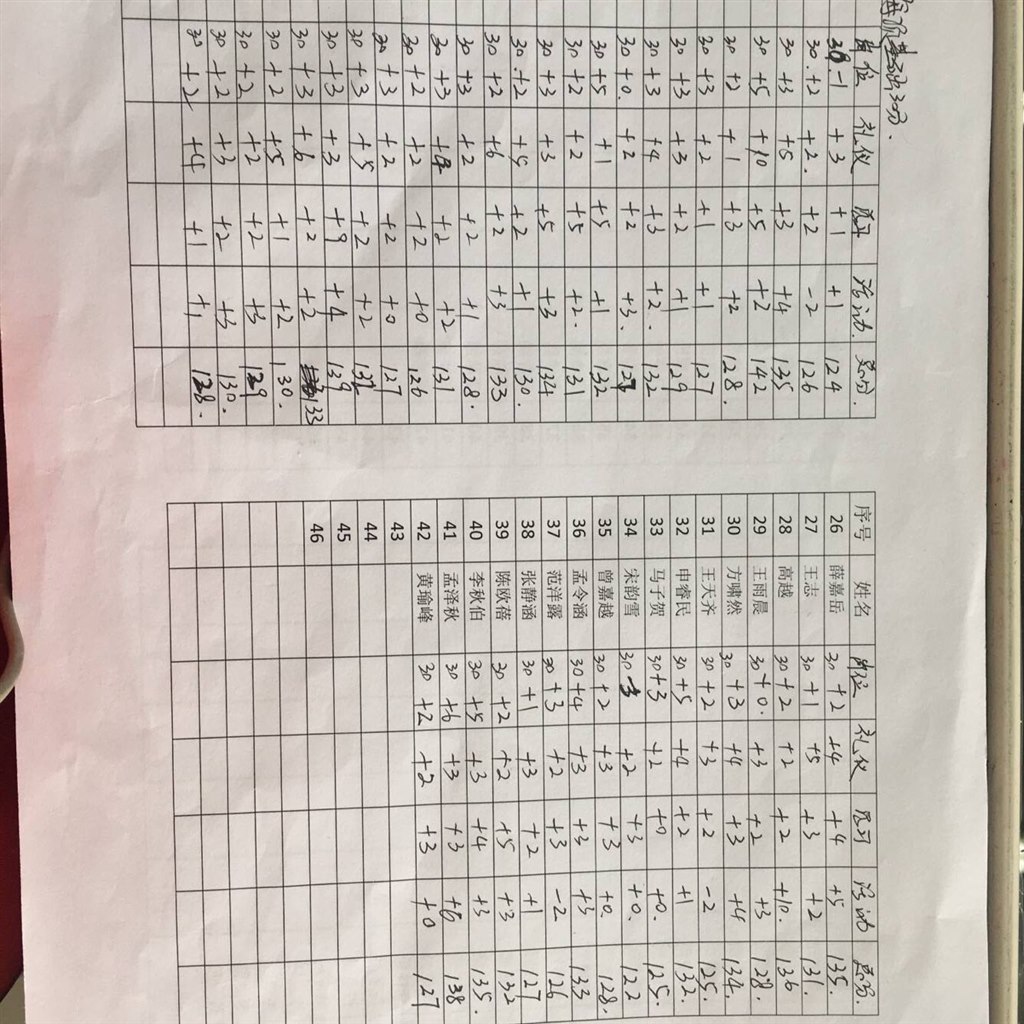 基础30分.
岗位 礼仪 活动 总分.
30 -1 +3 +1 +1 124
30.+2 +2. +2 -2 126
30 +3 +5 +3 +4 135
30 +5 +10 +5 +2 142
30 +2 +1 +3 +2 128.
30 +3 +2 +1 +1 127
30 +3 +3 +2 +1 129
30 +3 +4 +3 +2. 132
30 +0. +2 +2 +3. 127
30 +5 +1 +5 +1 132
30 +2 +2 +5 +2. 131
30 +3 +3 +5 +3 134
30.+2 +5 +2 +1 130.
30 +2 +6 +2 +3 133
30 +3 +2 +2 +1 128.
30 +3 +4 +2 +2 131
30 +2 +2 +2 +0 126
30 +3 +2 +2 +0 127
30 +3 +5 +2 +2 132
30 +3 +3 +9 +4 139
30 +3 +6 +2 +2 133
30 +2 +5 +1 +2 130.
30 +2 +2 +2 +3 129
30 +2 +3 +2 +3 130.
30 +2 +4 +1 +1 128.
序号 姓名 岗位 礼仪 活动 总分.
26 薛嘉岳 30 +2 +4 +4 +5 135.
27 王志 30 +1 +5 +3 +2 131.
28 高越 30 +2 +2 +2 +10. 136
29 王雨晨 30 +0. +3 +2 +3 128.
30 方啸然 30 +3 +4 +3 +4 134.
31 王天齐 30 +2 +3 +2 -2 125.
32 申睿民 30 +5 +4 +2 +1 132.
33 马子贺 30 +3 +2 +0 +0. 125.
34 宋韵雪 30 -3 +2 +3 +0. 122
35 曾嘉越 30 +2 +3 +3 +0. 128.
36 孟令涵 30 +4 +3 +3 +3 133
37 范洋露 30 +3 +2 +3 -2 126
38 张静涵 30 +1 +3 +2 +1 127
39 陈欧蓓 30 +2 +2 +5 +3. 132
40 李秋伯 30 +5 +3 +4 +3 135.
41 孟泽秋 30 +6 +3 +3 +6 138
42 黄瑜峰 30 +2 +2 +3 +0 127
43
44
45
46